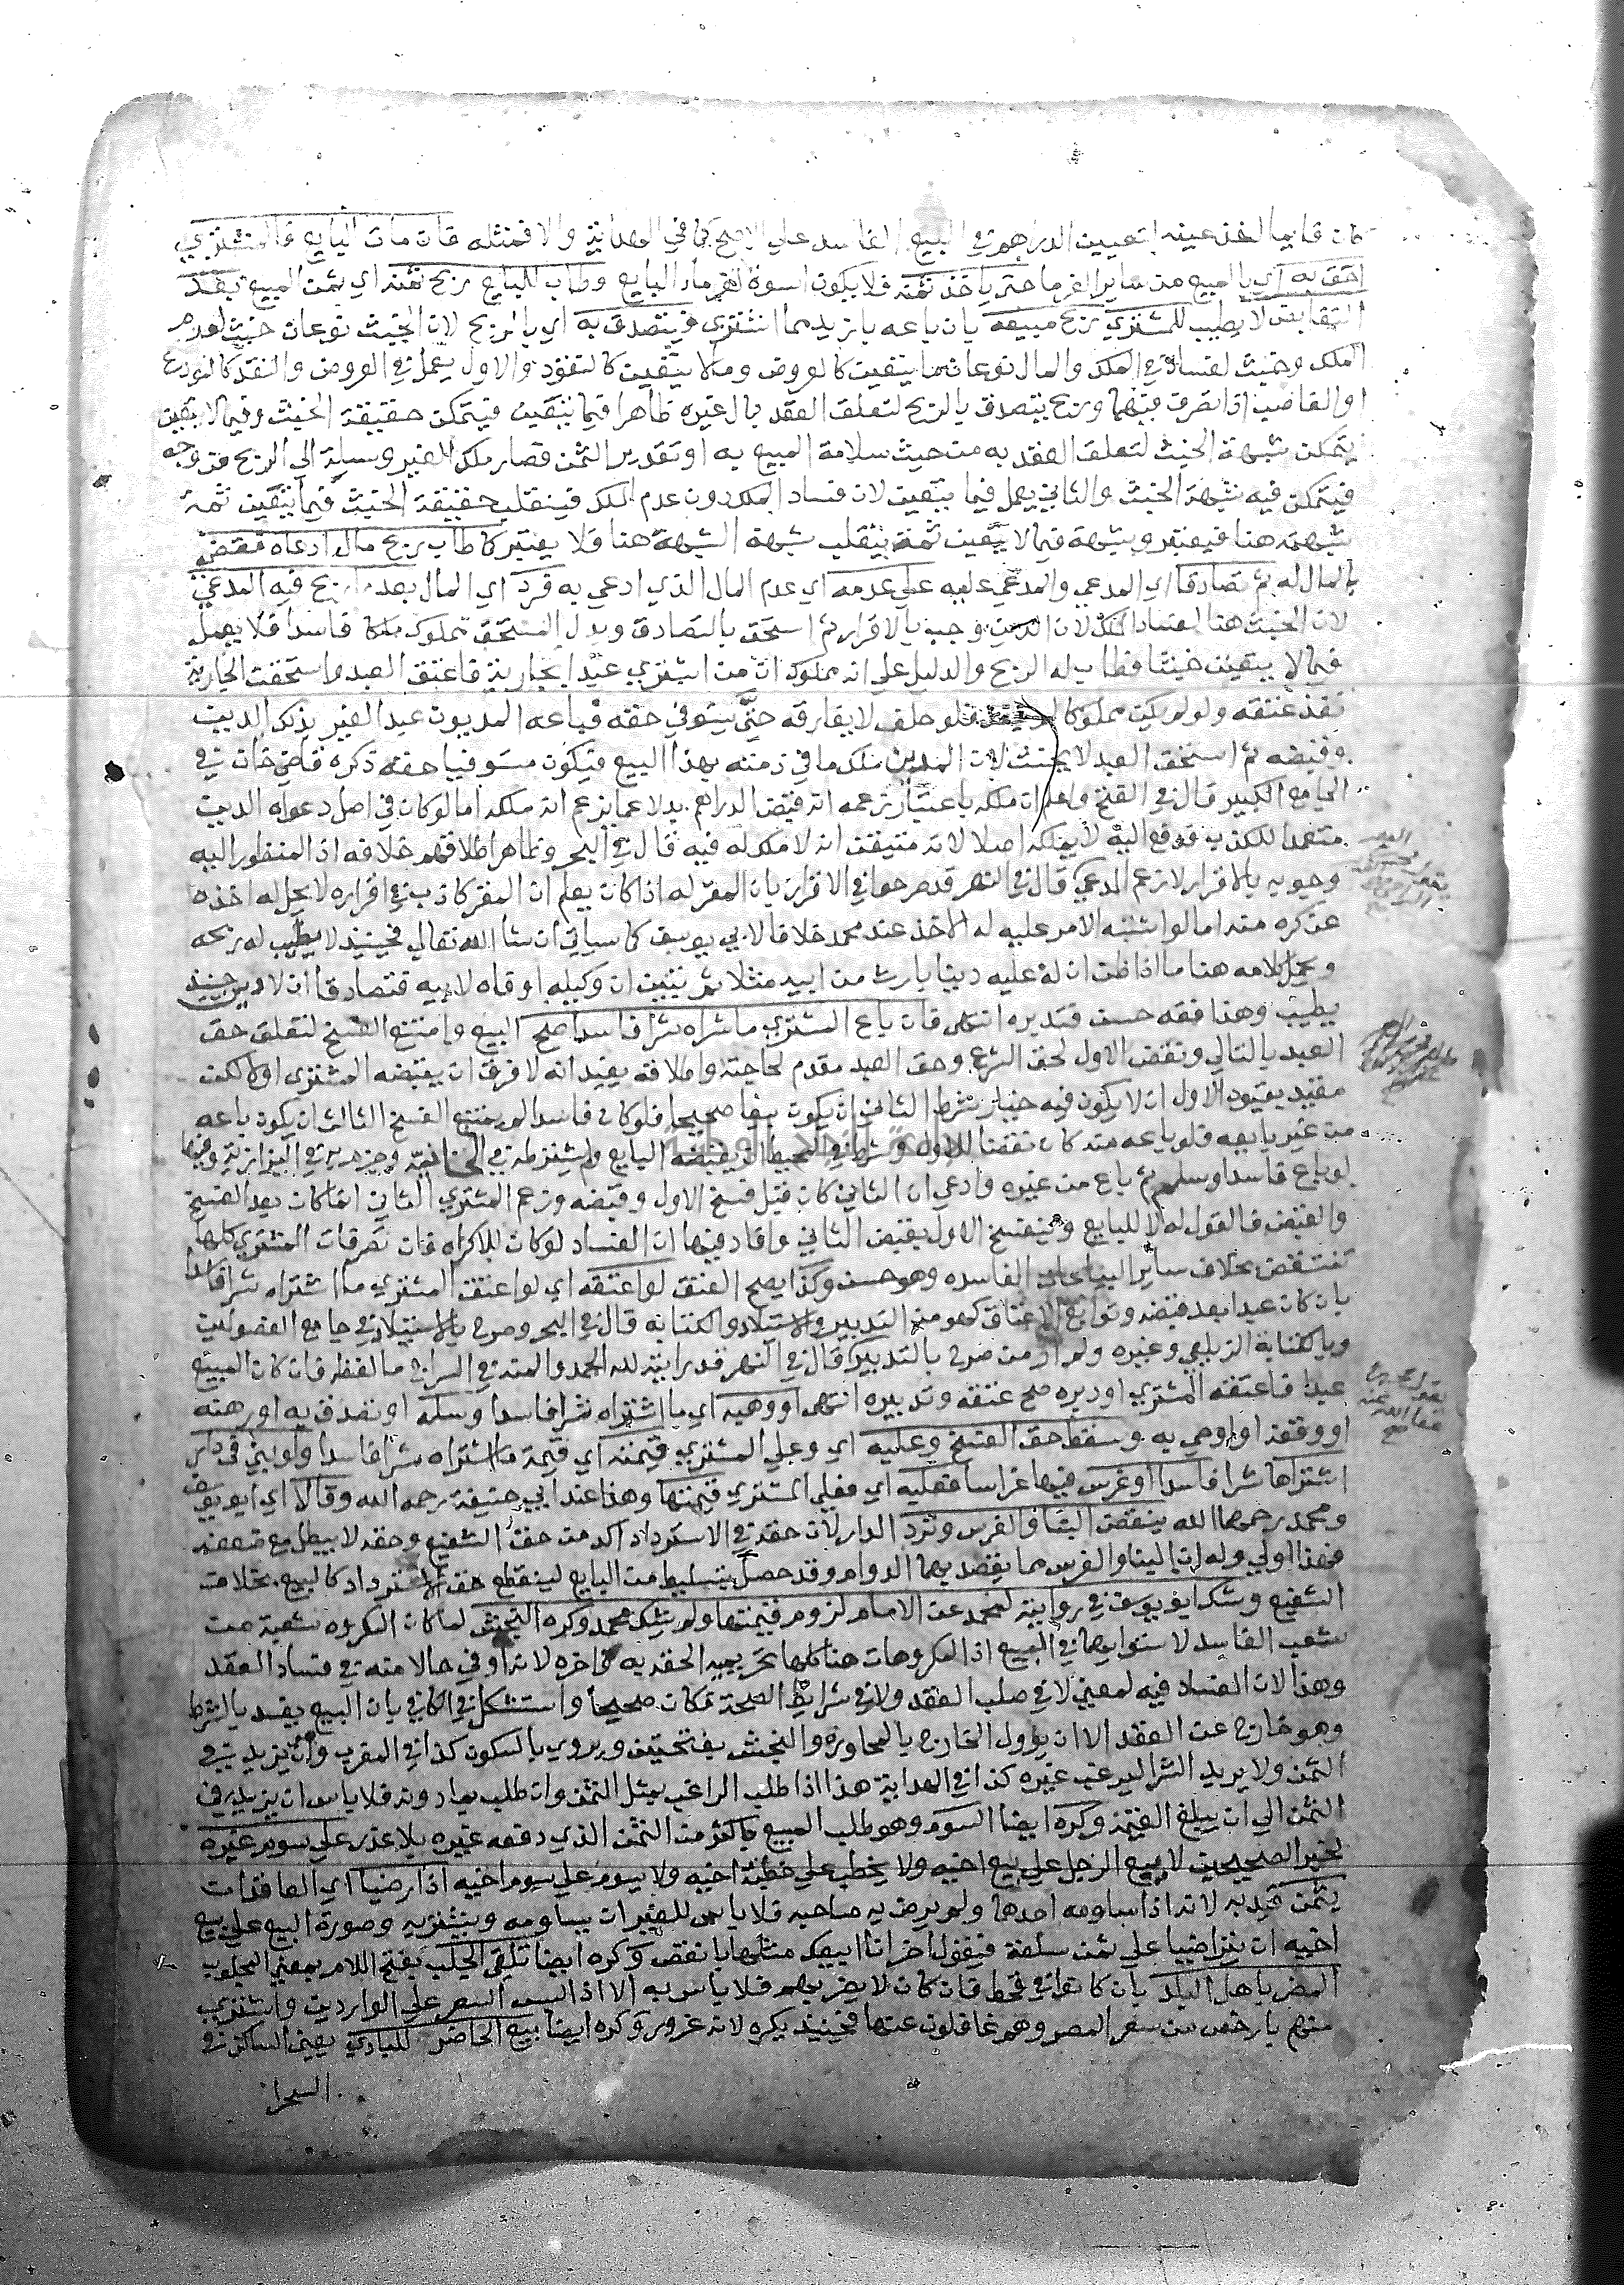 كان قايما اخذ عينه لتعيين الدرهم في البيع الفاسد علي الاصح كما في الهداية والا فمثله فان مات البايع فالمشتري
احق به اي بالمبيع من ساير الغرما حتي ياخذ ثمنه فلا يكون اسوة لغرما البايع وطاب للبايع ربح ثمنه اي ثمن المبيع بعد
التقابض لا يطيب للمشتري ربح مبيعه بان باعه بازيد مما اشتري فيتصدق به اي بالربح لان الخبث نوعان خبث لعدم
الملك وخبث لفساد في الملك والمال نوعان ما يتعين كالعروض وما لا يتعين كالنقود والاول يعمل في العروض والنقد كالمودع
او الغاصب اذا تصرف فيهما وربح يتصدق بالربح لتعلق العقد بمال غيره ظاهرا فيما يتعين فيتمكن حقيقة الخبث وفيما لا يتعين
يتمكن شبهة الخبث لتعلق العقد به من حيث سلامة المبيع به او تقدير الثمن فصار ملك الغير وسيلة الي الربح من وجه
فيتمكن فيه شبهة الخبث والثاني يعمل فيما يتعين لان فساد الملك دون عدم الملك فينقلب حقيقة الخبث فيما يتعين ثمة
شبهة هنا فيعتبر وشبهة فيما لا يتعين ثمة ينقلب شبهة الشبهة هنا فلا يعتبر كما طاب ربح مال ادعاه فقضي
بالمال له ثم تصادقا اي المدعي والمدعي عليه علي عدمه اي عدم المال الذي ادعي به فرد اي المال بعد ما ربح فيه المدعي
لان الخبث هنا لفساد الملك لان الدين وجب بالاقرار ثم استحق بالتصادق وبدل المستحق مملوك ملكا فاسدا فلا يعمل
فيما لا يتعين خبثا فطاب له الربح والدليل علي انه مملوك ان من اشتري عبدا بجارية فاعتق العبد واستحقت الجارية
نفذ عتقه ولو لم يكن مملوكا لم ينفذ فلو حلف لا يفارقه حتي يستوفي حقه فباعه المديون عبد الغير بذلك الدين
وقبضه ثم استحق العبد لا يحنث لان المدين ملك ما في ذمته بهذا البيع فيكون مستوفيا حقه ذكره قاضي خان في
الجامع الكبير قال في الفتح واعلم ان ملكه باعتبار زعمه انه قبض الدراهم بدلا عما يزعم انه ملكه اما لو كان في اصل دعواه الدين
متعمدا للكذب فدفع اليه لا يملكه اصلا لانه متيقن انه لا ملك له فيه قال في البحر وظاهر اطلاقهم خلافه اذ المنظور اليه
وجوبه بالاقرار لا زعم المدعي قال في النهر قد صرحوا في الاقرار بان المقر له اذا كان يعلم ان المقر كاذب في اقراره لا يحل له اخذه
عن كره منه اما لو اشتبه الامر عليه له الاخذ عند محمد خلافا لابي يوسف كما سياتي ان شا الله تعالي فحينيذ لا يطيب له ربحه
ويحمل كلامه هنا ما اذا ظن ان له عليه دينا بارث من ابيه مثلا ثم تبين ان وكيله اوفاه لابيه فتصادقا ان لا دين حينيذ
يطيب وهذا فقه حسن فتدبره انتهي فان باع المشتري ما شراه شرا فاسدا صح البيع وامتنع الفسخ لتعلق حق
العبد بالثاني ونقض الاول لحق الشرع وحق العبد مقدم لحاجته واطلاقه يفيد انه لا فرق ان يقبضه المشتري اولا لكن
مقيد بقيود الاول ان لا يكون فيه خيار شرط الثاني ان يكون بيعا صحيحا فلو كان فاسدا لم يمتنع الفسخ الثالث ان يكون باعه
من غير بايعه فلو باعه منه كان نقضا للاول وشرط في المحيط ان يقبضه البايع ولم يشترطه في الخانية وجزم به في البزازية وفيها
لو باع فاسدا وسلم ثم باع من غيره وادعي ان الثاني كان قبل فسخ الاول وقبضه وزعم المشتري الثاني انه كان بعد الفسخ
والقبض فالقول له لا للبايع وينفسخ الاول بقبض الثاني وافاد فيها ان الفساد لو كان للاكراه فان تصرفات المشتري كلها
تنتقض بخلاف ساير البياعات الفاسده وهو حسن وكذا يصح العتق لو اعتقه اي لو اعتق المشتري ما اشتراه شرا فاسدا
بان كان عبدا بعد قبضه وتوابع الاعتاق كهو من التدبير والاستيلاد والكتابه قال في البحر وصرح بالاستيلاد في جامع الفصولين
وبالكتابة الزيلعي وغيره ولم ار من صرح بالتدبير قال في النهر قد رايته لله الحمد والمنة في السراج ما لفظه فان كان المبيع
عبدا فاعتقه المشتري او دبره صح عتقه وتدبيره انتهي او وهبه اي ما اشتراه شرا فاسدا وسلمه او تصدق به او رهنه
او وقفه او اوصي به وسقط حق الفسخ وعليه اي وعلي المشتري قيمته اي قيمة ما اشتراه شرا فاسدا ولو بني في دار
اشتراها شرا فاسدا او غرس فيها غراسا فعليه اي فعلي المشتري قيمتها وهذا عند ابي حنيفة رحمه الله وقالا اي ابو يوسف
ومحمد رحمهما الله ينقض البنا والغرس وترد الدار لان حقه في الاسترداد اكد من حق الشفيع وحقه لا يبطل مع ضعفه
فهذا اولي وله ان البنا والغرس مما يقصد بهما الدوام وقد حصل بتسليط من البايع لينقطع حق الاسترداد كالبيع بخلاف
الشفيع وشك ابو يوسف في رواية لمحمد عن الامام لزوم قيمتها ولم يشك محمد وكره النجش لما كان المكروه شعبة من
شعب الفاسد لاستوايهما في المبيع اذ المكروهات هنا كلها تحريمية الحقه به واخره لانه اوفي حالا منه في فساد العقد
وهذا لان الفساد فيه لمعني لا في صلب العقد ولا في شرايط الصحة فكان صحيحا واستشكل في الكافي بان البيع يفسد بالشرط
وهو خارج عن العقد الا ان يؤول الخارج بالمجاورة والنجش بفتحتين ويروي بالسكون كذا في المغرب وهو ان يزيد في
الثمن ولا يريد الشرا ليرغب غيره كذا في الهداية هذا اذا طلب الراغب بمثل الثمن وان طلب بما دونه فلا باس ان يزيد في
الثمن الي ان يبلغ القيمة وكره ايضا السوم وهو طلب المبيع باكثر من الثمن الذي دفعه غيره بلا عذر علي سوم غيره
لخبر الصحيحين لا يبيع الرجل علي بيع اخيه ولا يخطب علي خطبة اخيه ولا يسوم علي سوم اخيه اذا رضيا اي العاقدان
بثمن قيد به لانه اذا ساومه احدهما ولم يرض به صاحبه فلا باس للغير ان يساومه ويشتريه وصورة البيع علي بيع
اخيه ان يتراضيا علي ثمن سلعة فيقول اخر انا ابيعك مثلها بانقص وكره ايضا تلقي الجلب بفتح اللام بمعني المجلوب
المضر باهل البلد بان كانوا في قحط فان كان لا يضر بهم فلا باس به الا اذا لبس السعر علي الواردين واشتري
منهم بارخص من سعر المصر وهم غافلون عنها فحينيذ يكره لانه غرور وكره ايضا بيع الحاضر للبادي يعني الساكن في
السحرا